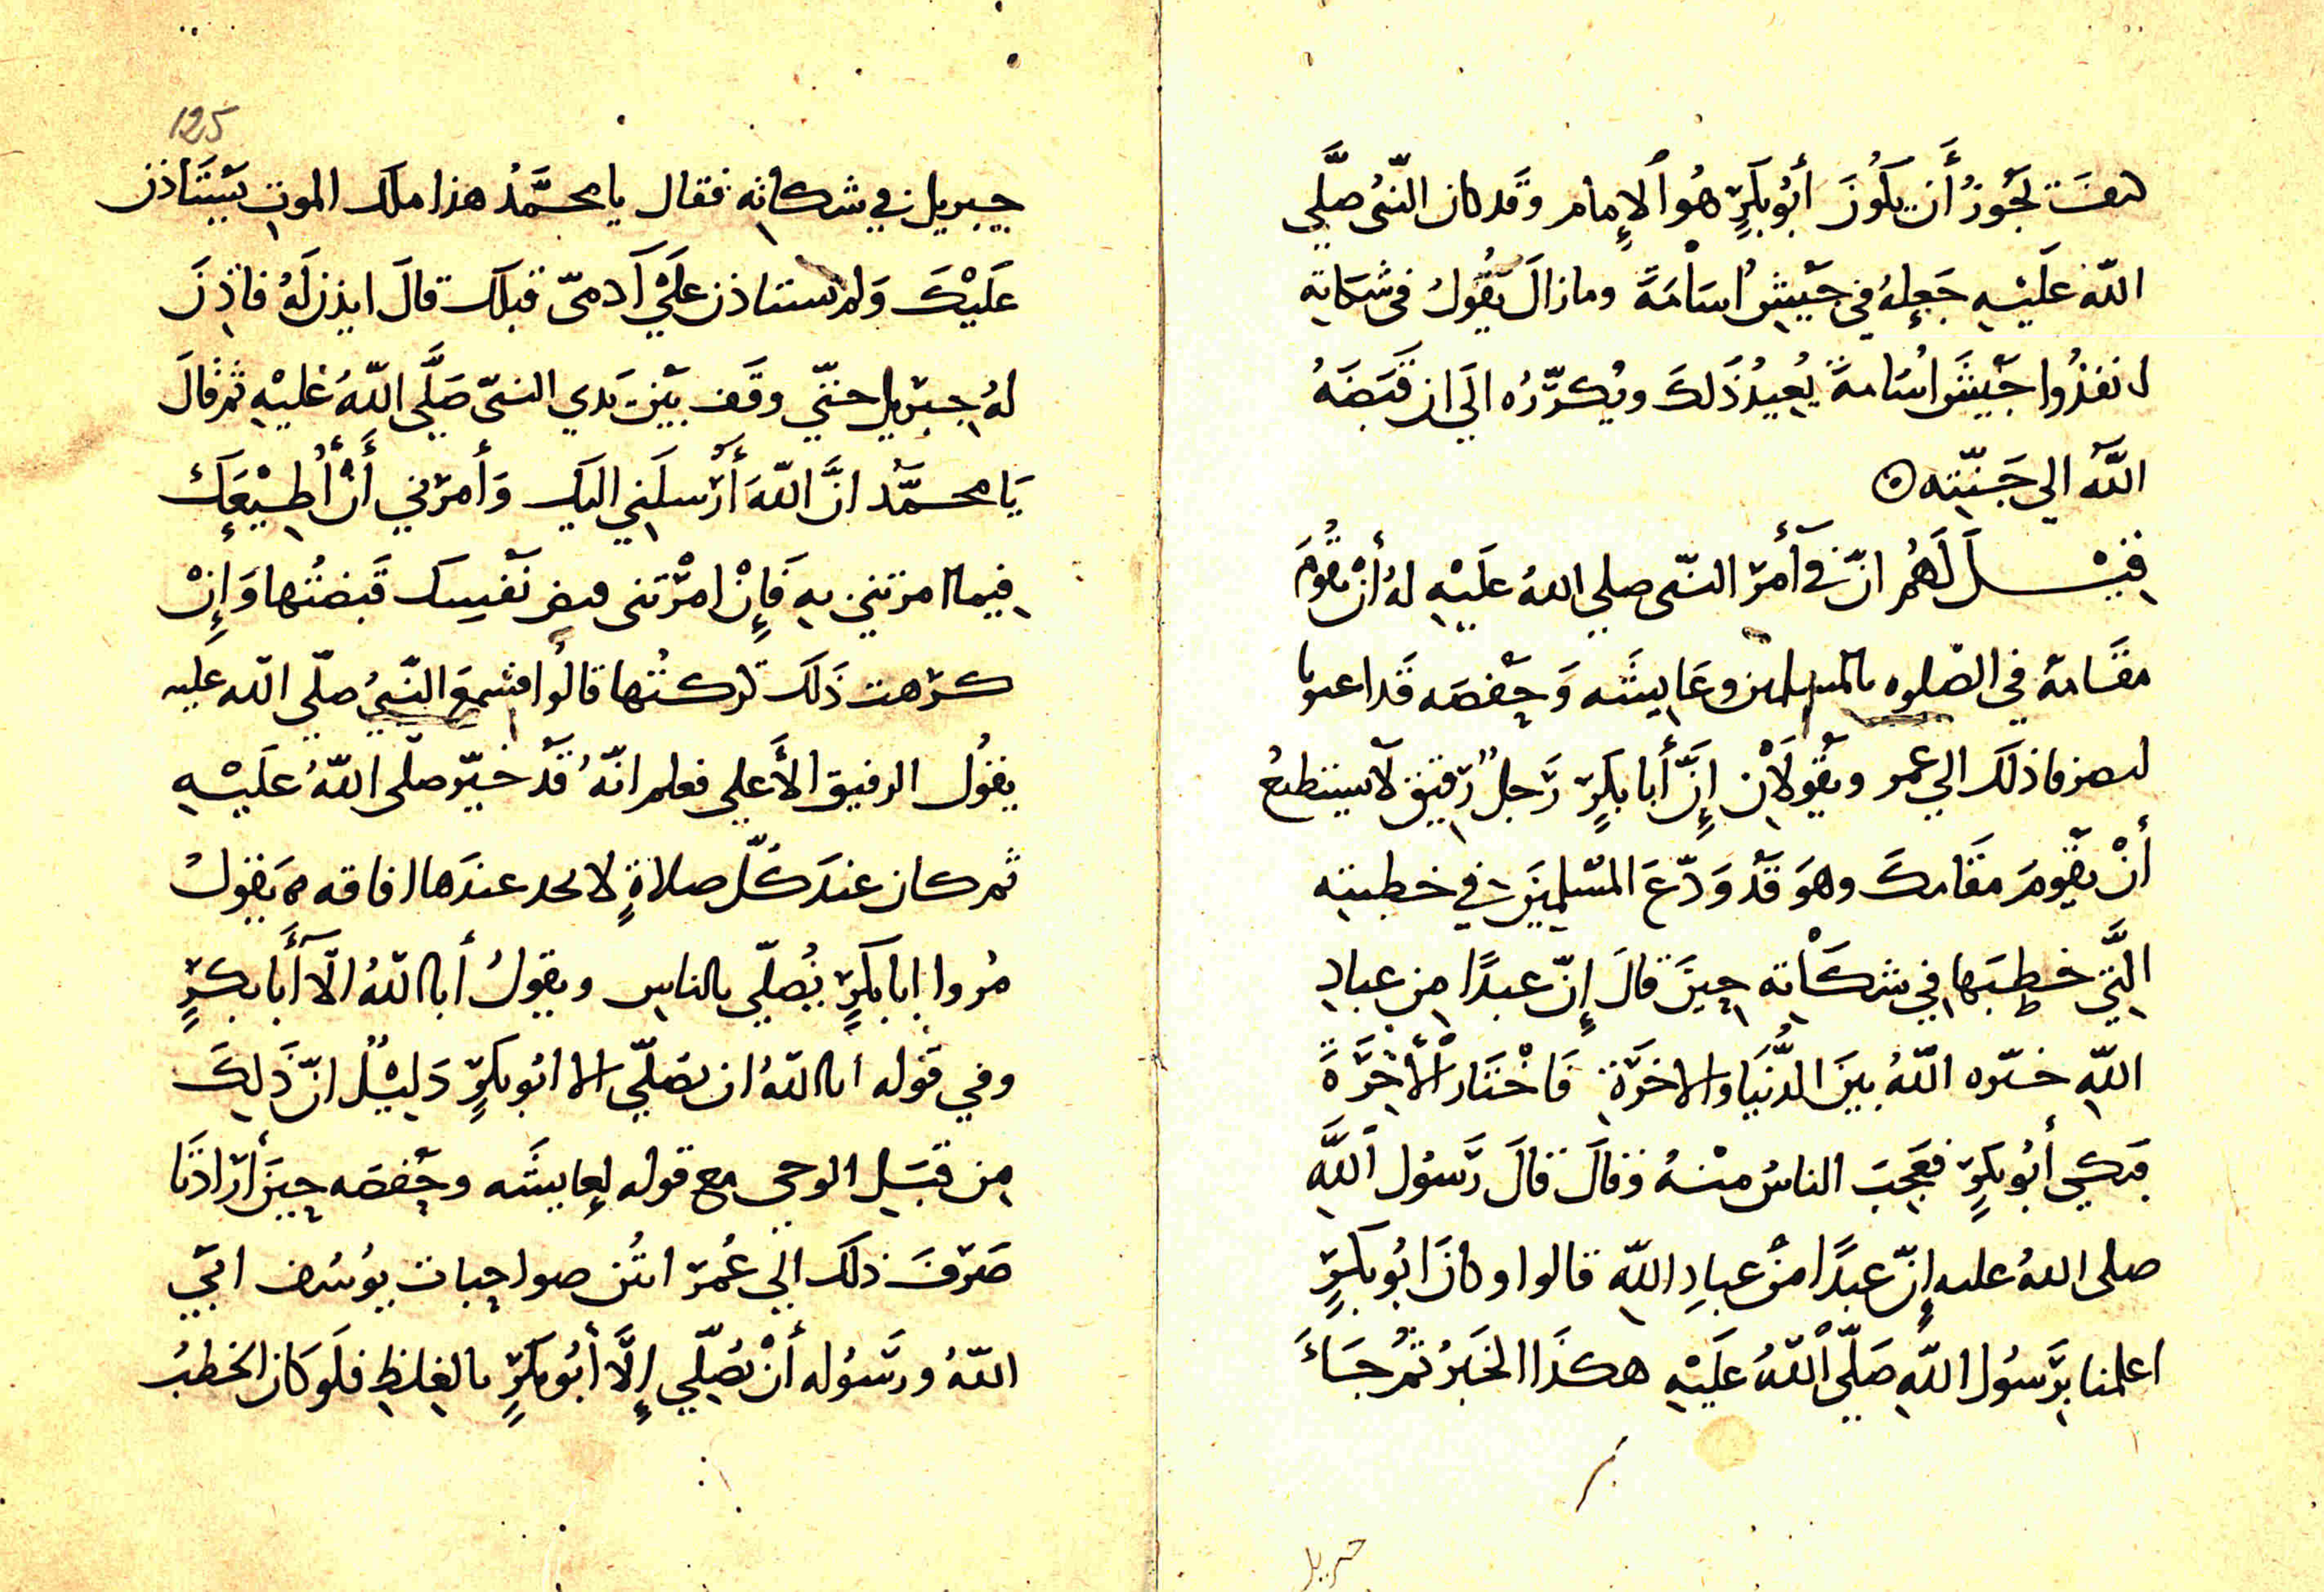 كيفَ يَجُوزُ أَن يَكُونَ أَبُو بَكرٍ هُو الإِمام وقَد كان النّبيُ صلَّي
اللّه عَلَيْهِ جَعلهُ في جَيشِ اُسَامَةَ ومازالَ يَقُولُ في شَكاتِه
انفذُوا جَيشَ اسُامةَ يُعِيدُ ذَلكَ ويُكرّرُه الَي ان قَبَضَهُ
اللَّهُ الي جَنّتِه
قِيْلَ لَهُم انّ في أَمرَ النّبي صلي اللهُ عَلَيْهِ لهُ أَنْ يقُومَ
مقَامَهُ في الصّلوه بالمسلمين وعَايِشَه وَحَفصَه قَد اعبوبا
لصرفا ذلَكَ الي عمر ويقُولَانِ إِنَّ أبا بَكرٍ رَجلٌ رَقيق لَا يستطيعُ
أنْ يقُومَ مقَامكَ وهوَ قَدْ وَدّعَ المسْلمِينَ في خطبته
الّتَي خطبَهَا في شكَاتِه حِينَ قالَ إِنّ عبدًا مِن عبادِ
اللّهِ خيّره اللّهُ بينَ الدُّنيَا والاخرَةِ فَاخْتَار الْأَخِرَةَ
فبَكي أبُو بكرٍ فعَجِبَ الناسُ منْهُ وَقالَ قالَ رَسُول اَللَّهِ
صلي اللهُ عليه إِنّ عبدًا منْ عبادِ اللّهِ قالوا وكانَ ابُو بكرٍ
اعلمنا برَسُول اللّهِ صَلّي اْللّهُ عَلَيْهِ هكذَا الخَبرُ ثُمّ جَاءَ
جبريل
125
جبريل في شكاتِه فقال يا محمَّدُ هذا ملك الموتِ يَسْتَاذن
عَلَيْكَ وَلم يستاذن عَلَي آدَميّ قبلَك قالَ ايذن لَهُ فاذِنَ
لهُ جبرَيل حتّي وقَف بَيْنَ يَدي النبيّ صَلَّي اللّهُ عَليْهِ ثم قالَ
يَا محمَّد انَّ اللّهَ أَرْسلَني اليكِ وَأمرَني أَنْ أُطِيْعَكَ
فيما امرتني بهِ فَإِنْ امْرَتَني قبض نَفسِكَ قَبضتُها وَإِنْ
كرَهت ذَلكَ تركتُها قالُوا فسُمعَ النّبيُّ صلّي اللّه عليه
يقُول الرفيق الأَعلي فعلم انّهُ قَدْ خيّر صلّي اللّهُ عَلَيْهِ
ثم كان عندَ كُلّ صلاةٍ لا يجد عندَها افاقه يَقُولُ
مُروا ابا بكَرٍ يُصَلّي بالناسِ ويقولُ أبا اللّهُ الّا أَبَا بكرٍ
وفي قَولِه ابا اللّهُ ان يصَلّي الا ابُو بكرٍ دَلِيْلُ انّ ذَلِكَ
مِن قبَلِ الوحي مع قولِه لعايشَه وحَفصَه حِينَ أرَادَتَا
صَرَفَ ذلَكَ الي عُمرَ انتُن صواحِبات يوُسُف ابَي
اللّهُ ورسُوله أنْ يُصلّي إِلَّا أَبُو بكرٍ بالغِلظِ فلَو كَان الخطبُ